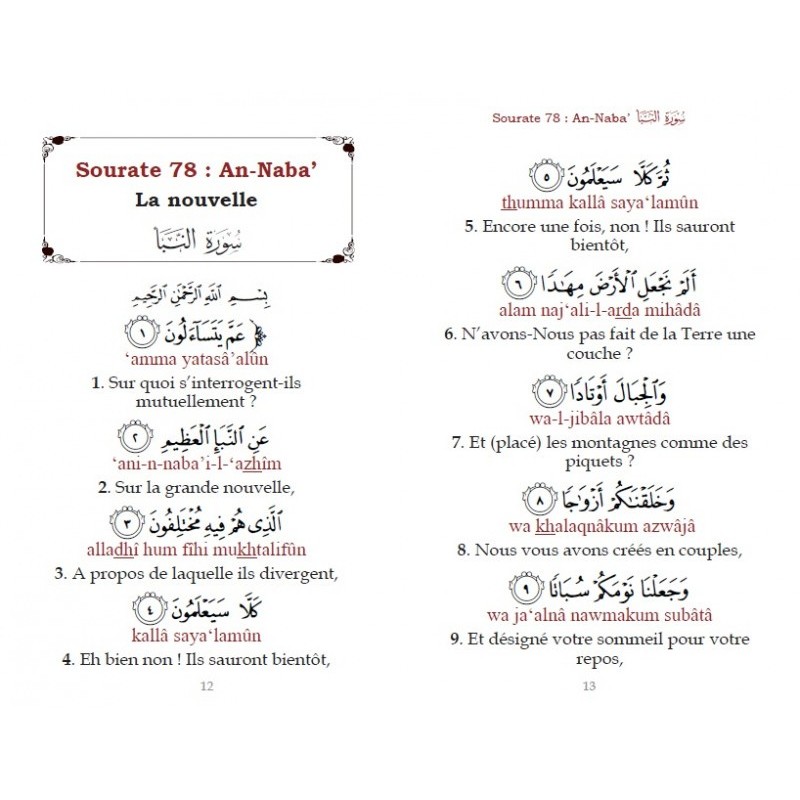 Sourate 78 : An-Naba’
La nouvelle
سُورَةُ النَّبَإِ
بِسْمِ ٱللَّهِ ٱلرَّحْمَٰنِ ٱلرَّحِيمِ
﴿ عَمَّ يَتَسَآءَلُونَ ١
‘amma yatasâ’alûn
1. Sur quoi s’interrogent-ils
mutuellement ?
عَنِ ٱلنَّبَإِ ٱلْعَظِيمِ ٢
‘ani-n-naba’i-l-‘azhîm
2. Sur la grande nouvelle,
ٱلَّذِى هُمْ فِيهِ مُخْتَلِفُونَ ٣
alladhî hum fîhi mukhtalifûn
3. A propos de laquelle ils divergent,
كَلَّا سَيَعْلَمُونَ ٤
kallâ saya‘lamûn
4. Eh bien non ! Ils sauront bientôt,
12
Sourate 78 : An-Naba’ سُورَةُ النَّبَإِ
ثُمَّ كَلَّا سَيَعْلَمُونَ ٥
thumma kallâ saya‘lamûn
5. Encore une fois, non ! Ils sauront
bientôt,
أَلَمْ نَجْعَلِ ٱلْأَرْضَ مِهَٰدًا ٦
alam naj‘ali-l-arda mihâdâ
6. N’avons-Nous pas fait de la Terre une
couche ?
وَٱلْجِبَالَ أَوْتَادًا ٧
wa-l-jibâla awtâdâ
7. Et (placé) les montagnes comme des
piquets ?
وَخَلَقْنَٰكُمْ أَزْوَٰجًا ٨
wa khalaqnâkum azwâjâ
8. Nous vous avons créés en couples,
وَجَعَلْنَا نَوْمَكُمْ سُبَاتًا ٩
wa ja‘alnâ nawmakum subâtâ
9. Et désigné votre sommeil pour votre
repos,
13